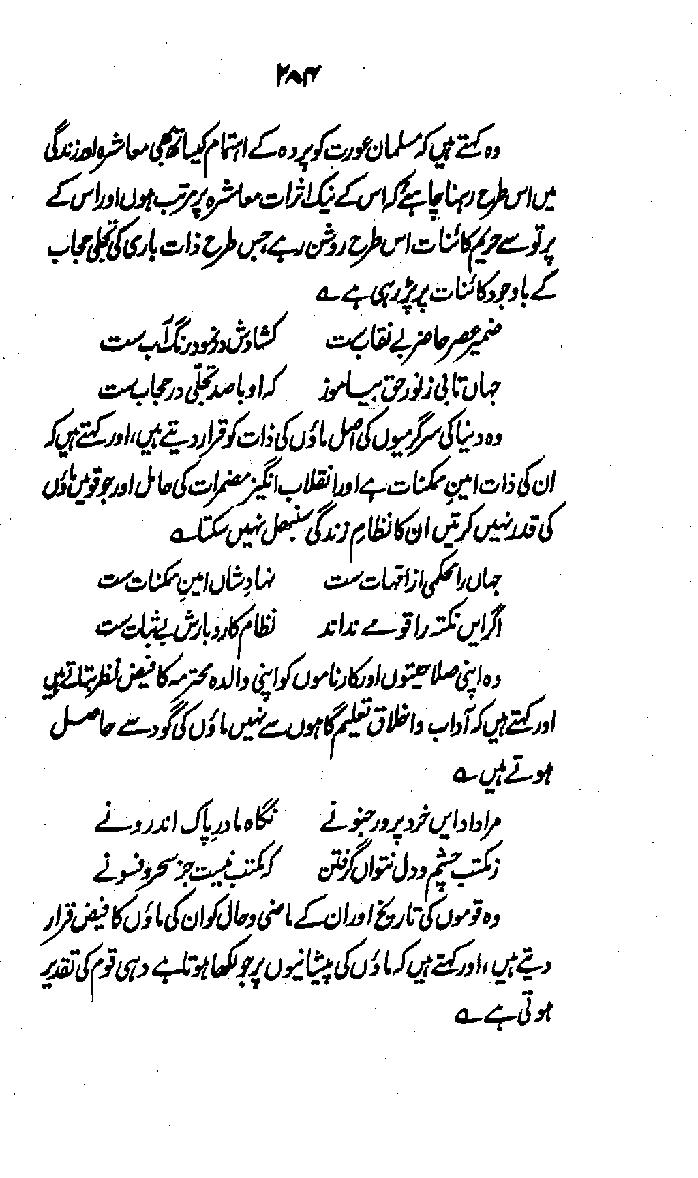 ۲۸۴
وہ کہتے ہیں کہ مسلمان عورت کو پردہ کے اہتمام کیساتھ بھی معاشرہ اور زندگی
میں اس طرح رہنا چاہئے کہ اس کے نیک اثرات معاشرہ پر مرتب ہوں اور اس کے
پرتو سے حریم کائنات اس طرح روشن رہے جس طرح ذات باری کی تجلی حجاب
کے باوجود کائنات پر پڑ رہی ہے ؎
ضمیر عصر حاضر بے نقاب ست    کشادش در نمود رنگ آب ست
جہاں تابی ز نور حق بیاموز    کہ او با صد تجلی در حجاب ست
وہ دنیا کی سرگرمیوں کی اصل ماؤں کی ذات کو قرار دیتے ہیں، اور کہتے ہیں کہ
ان کی ذات امینِ ممکنات ہے اور انقلاب انگیز مضمرات کی حامل اور جو قومیں ماؤں
کی قدر نہیں کرتیں ان کا نظامِ زندگی سنبھل نہیں سکتا ؎
جہاں را محکمی از امہات ست    نہاد شاں امینِ ممکنات ست
اگر ایں نکتہ را قومے نداند    نظام کاروبارش بے ثبات ست
وہ اپنی صلاحیتوں اور کارناموں کو اپنی والدہ محترمہ کا فیض نظر بتاتے ہیں
اور کہتے ہیں کہ آداب و اخلاق تعلیم گاہوں سے نہیں ماؤں کی گود سے حاصل
ہوتے ہیں ؎
مرا داد ایں خرد پرور جنونے    نگاہ مادرِ پاک اندرونے
ز مکتب چشم و دل نتواں گرفتن    کہ مکتب نیست جز سحر و فسونے
وہ قوموں کی تاریخ اور ان کے ماضی و حال کو ان کی ماؤں کا فیض قرار
دیتے ہیں، اور کہتے ہیں کہ ماؤں کی پیشانیوں پر جو لکھا ہوتا ہے وہی قوم کی تقدیر
ہوتی ہے ؎